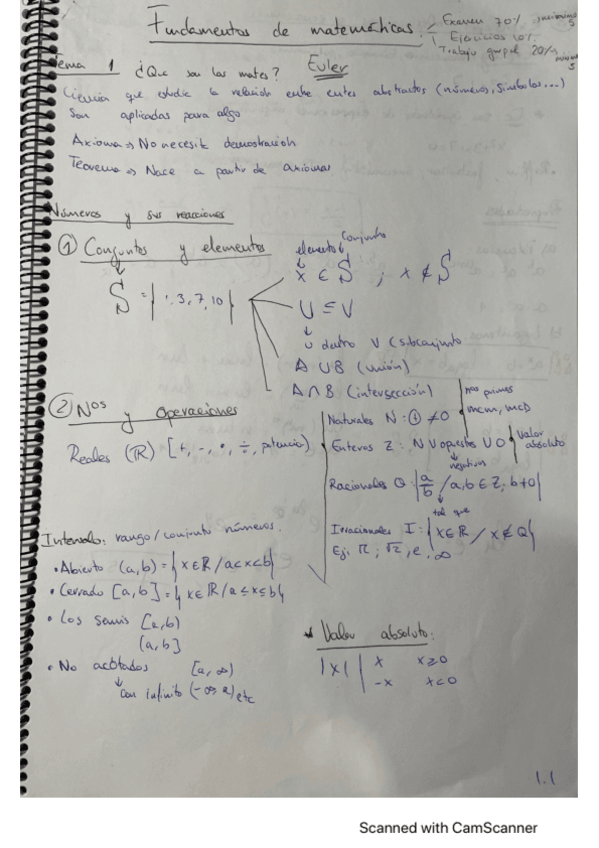 Fundamentos de matemáticas:
Examen 70% mínimo 5
Ejercicios 10%
Trabajo grupal 20% mínimo 5
Tema 1 ¿Que son las mates? Euler
Ciencia que estudia la relación entre entes abstractos (números, símbolos...)
Son aplicadas para algo
Axioma => No necesita demostración
Teorema => Nace a partir de axiomas
Números y sus reacciones
① Conjuntos y elementos
elemento Conjunto
x ∈ S ; x ∉ S
S = { 1, 3, 7, 10 }
U ⊆ V
U dentro V (subconjunto
A ∪ B (unión)
A ∩ B (intersección)
② Nos y operaciones
Reales (ℝ) [+, -, •, ÷, potencia)
Naturales N : ① ≠ 0
nos primos
mcm, mcd
Enteros Z : N ∪ opuestos ∪ 0
Valor absoluto
negativos
Racionales Q : { a/b / a, b ∈ Z, b ≠ 0 }
tal que
Irracionales I : { x ∈ ℝ / x ∉ Q }
Ej: π, √2, e, ∞
Intervalo: rango / conjunto números.
• Abierto (a, b) = { x ∈ ℝ / a < x < b }
• Cerrado [a, b] = { x ∈ ℝ / a ≤ x ≤ b }
• Los semis [a, b)
(a, b]
• No acotados [a, ∞)
Con infinito (-∞, a) etc
* Valor absoluto:
|x| | x x ≥ 0
-x x < 0
1.1
Scanned with CamScanner